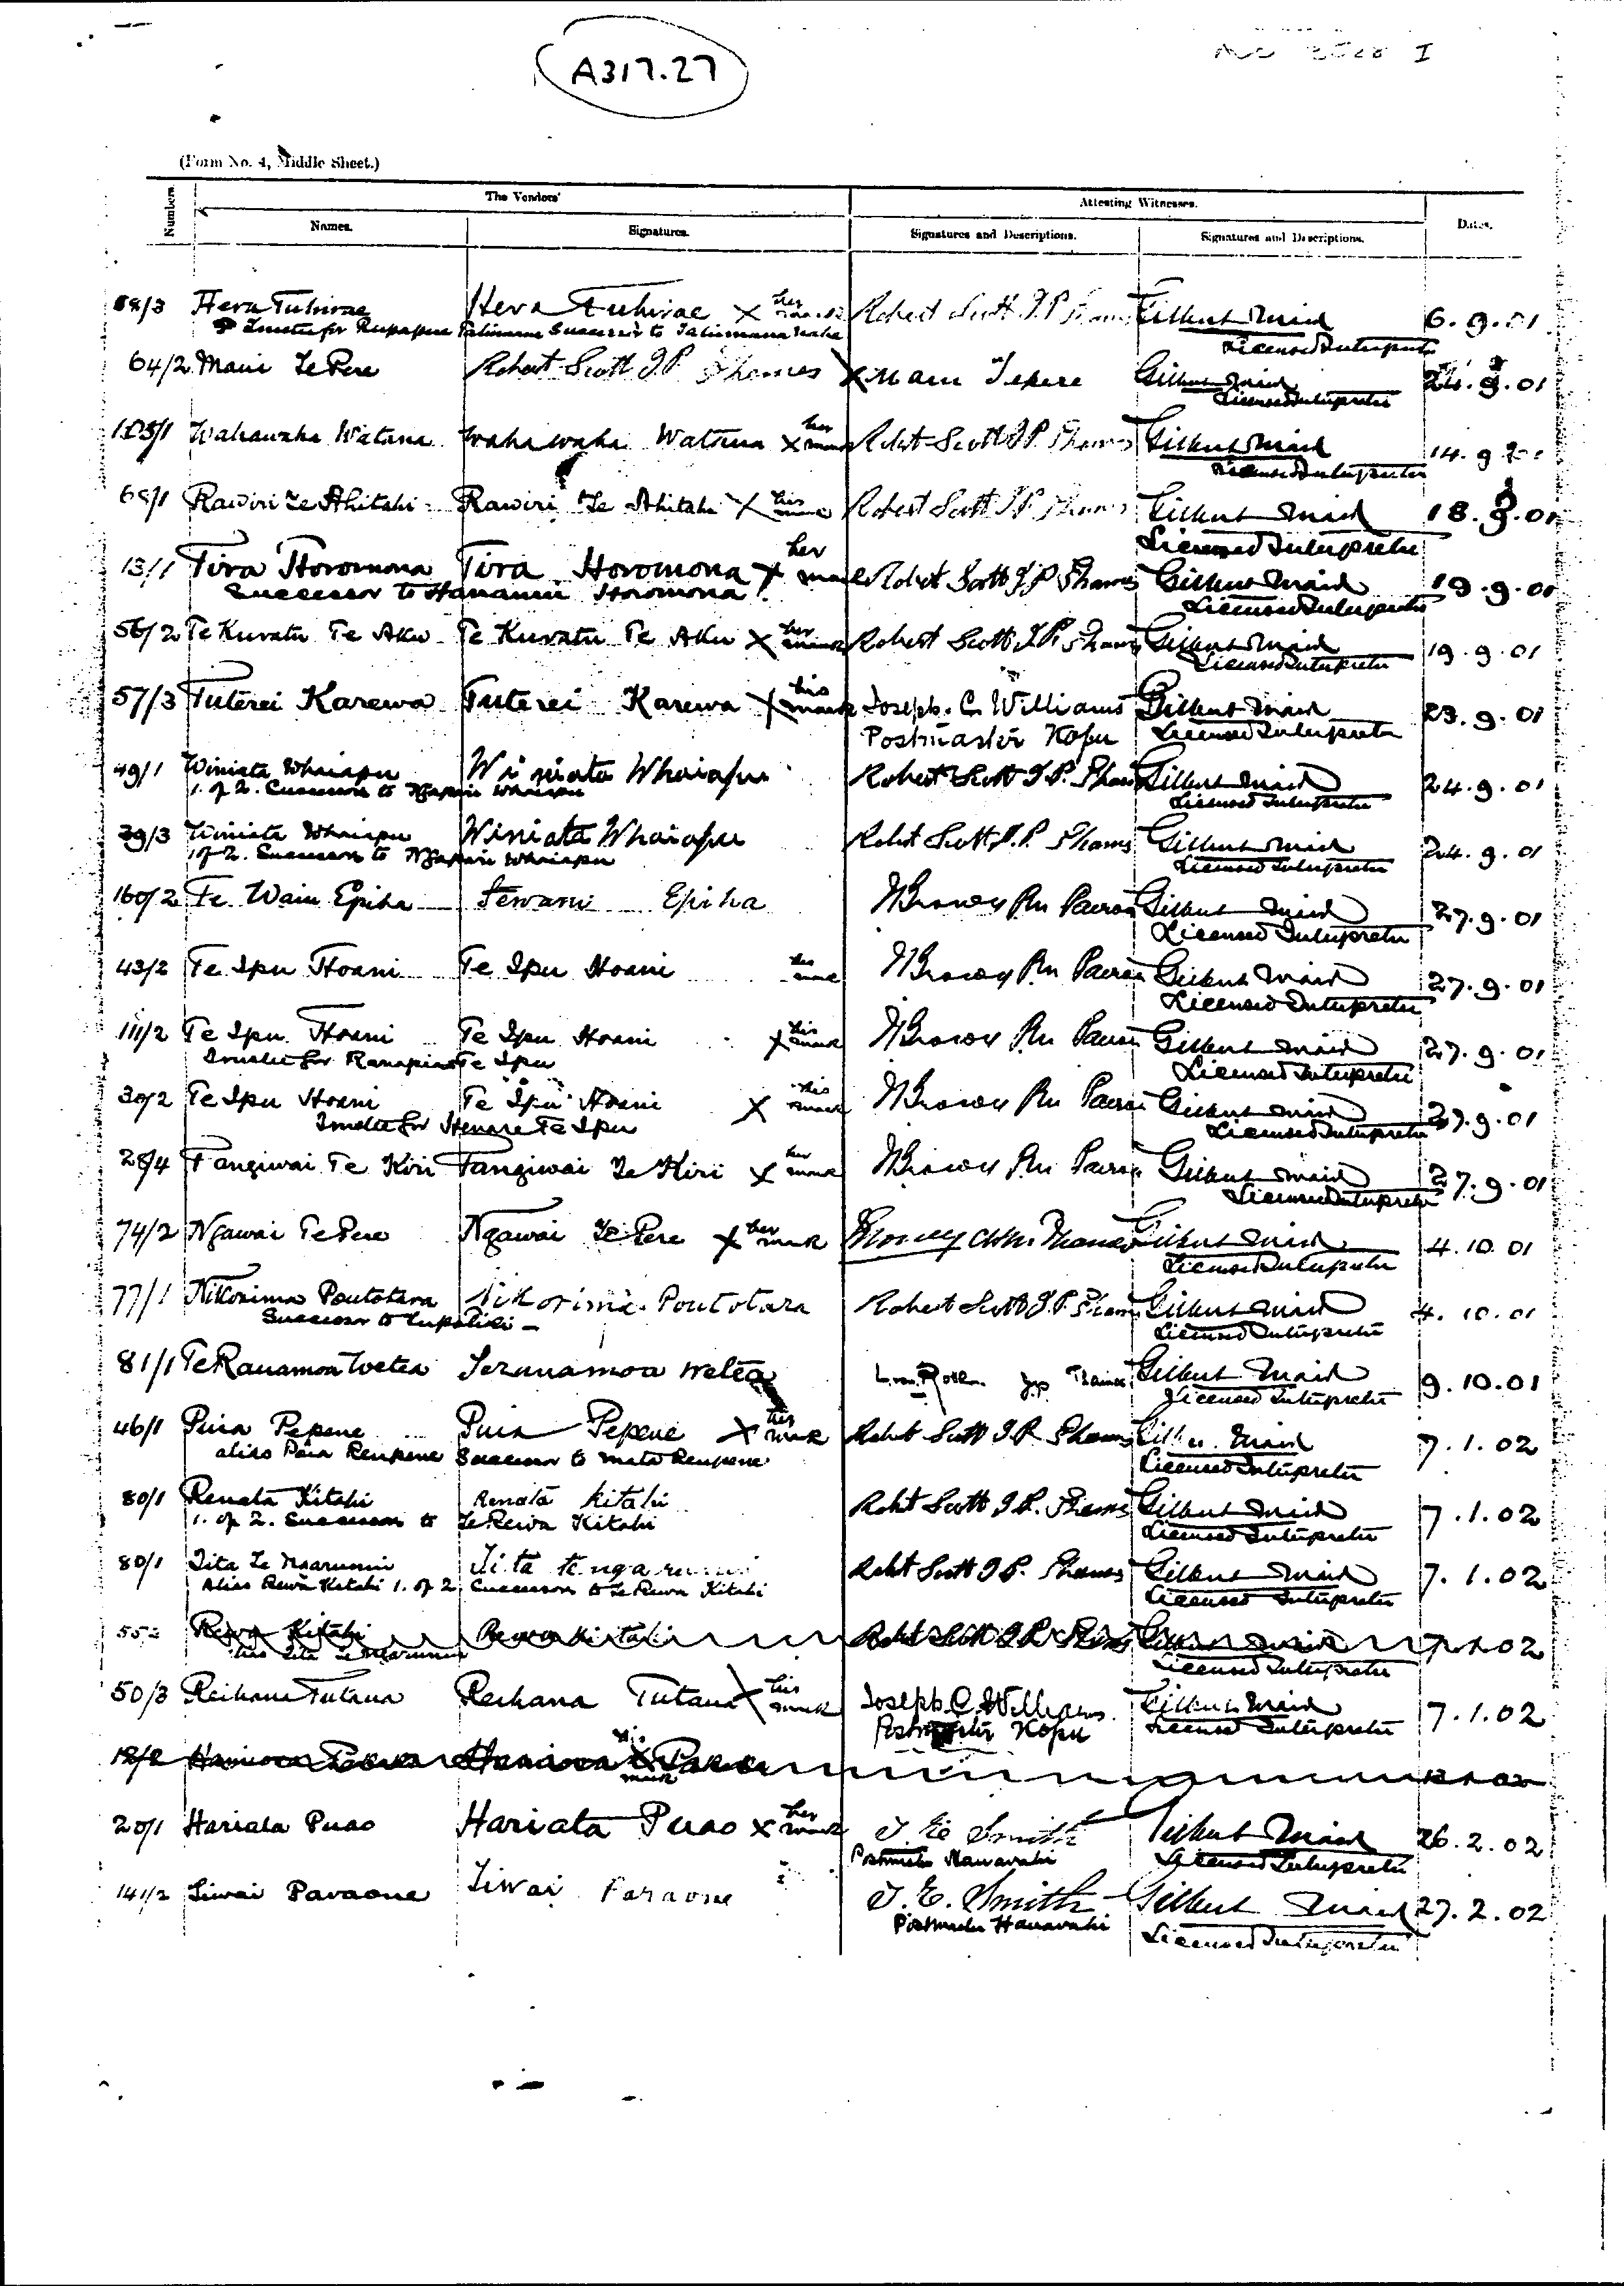 A317.27
(Form No. 4, Middle Sheet.)
Numbers. The Vendors' Attesting Witnesses. Dates.
Names. Signatures. Signatures and Descriptions. Signatures and Descriptions.
68/3 Hera Tuhirae Hera Tuhirae X her mark Robert Scott J.P. Thames Gilbert Mair 6.9.01
Trustee for Successor to Licensed Interpreter
64/2 Maui Te Pere Robert Scott J.P. Thames X Maui Tepere Gilbert Mair 24.9.01
Licensed Interpreter
Wahawaha Watana Wahawaha Watana X her mark Robt Scott J.P. Thames Gilbert Mair 14.9.01
Licensed Interpreter
68/1 Rawiri Te Ahitahi Rawiri Te Ahitahi X his mark Robert Scott J.P. Thames Gilbert Mair 18.9.01
Licensed Interpreter
13/1 Tira Horomona Tira Horomona X her mark Robert Scott J.P. Thames Gilbert Mair 19.9.01
Successor to Horomona Licensed Interpreter
56/2 Te Kuratu Te Aku Te Kuratu Te Aku X her mark Robert Scott J.P. Thames Gilbert Mair 19.9.01
Licensed Interpreter
57/3 Tuterei Karewa Tuterei Karewa X his mark Joseph. C. Williams Gilbert Mair 23.9.01
Postmaster Kopu Licensed Interpreter
49/1 Winiata Whaiapu Winiata Whaiapu Robert Scott J.P. Thames Gilbert Mair 24.9.01
1. of 2. Successors to Ngapari Whaiapu Licensed Interpreter
39/3 Winiata Whaiapu Winiata Whaiapu Robt Scott J.P. Thames Gilbert Mair 24.9.01
1 of 2. Successors to Ngapari Whaiapu Licensed Interpreter
160/2 Te Wani Epiha Tewani Epiha Gilbert Mair 27.9.01
Licensed Interpreter
43/2 Te Ipu Hoani Te Ipu Hoani his mark Gilbert Mair 27.9.01
Licensed Interpreter
111/2 Te Ipu Hoani Te Ipu Hoani X his mark Gilbert Mair 27.9.01
Trustee for Ranapia Te Ipu Licensed Interpreter
30/2 Te Ipu Hoani Te Ipu Hoani X his mark Gilbert Mair 27.9.01
Trustee for Henare Te Ipu Licensed Interpreter
28/4 Tangiwai Te Kiri Tangiwai Te Kiri X her mark Gilbert Mair 27.9.01
Licensed Interpreter
74/2 Ngawai Te Pere Ngawai Te Pere X her mark Gilbert Mair 4.10.01
Licensed Interpreter
77/1 Nikorima Poutotara Nikorima Poutotara Robert Scott J.P. Thames Gilbert Mair 4.10.01
Successor to Licensed Interpreter
81/1 Te Ranamoa Wetea Teranamoa Wetea J.P. Thames Gilbert Mair 9.10.01
Licensed Interpreter
46/1 Puia Pepene Puia Pepene X her mark Robt Scott J.P. Thames Gilbert Mair 7.1.02
alias Puia Reupene Successor to Mata Reupene Licensed Interpreter
80/1 Renata Kitahi Renata Kitahi Robt Scott J.P. Thames Gilbert Mair 7.1.02
1. of 2. Successors to Te Rewa Kitahi Licensed Interpreter
80/1 Tita Te Ngarunui Tita te ngarunui Robt Scott J.P. Thames Gilbert Mair 7.1.02
alias Rewa Kitahi 1. of 2 Successors to Te Rewa Kitahi Licensed Interpreter
55/2 Rewa Kitahi Rewa Kitahi Robt Scott J.P. Thames Gilbert Mair 7.1.02
alias Tita Te Ngarunui Licensed Interpreter
50/3 Reihana Tutana Reihana Tutana X his mark Joseph. C. Williams Gilbert Mair 7.1.02
Postmaster Kopu Licensed Interpreter
20/1 Hariata Puao Hariata Puao X her mark T. E. Smith Gilbert Mair 26.2.02
Postmaster Hauarahi Licensed Interpreter
141/2 Tiwai Paraone Tiwai Paraone T. E. Smith Gilbert Mair 27.2.02
Postmaster Hauarahi Licensed Interpreter